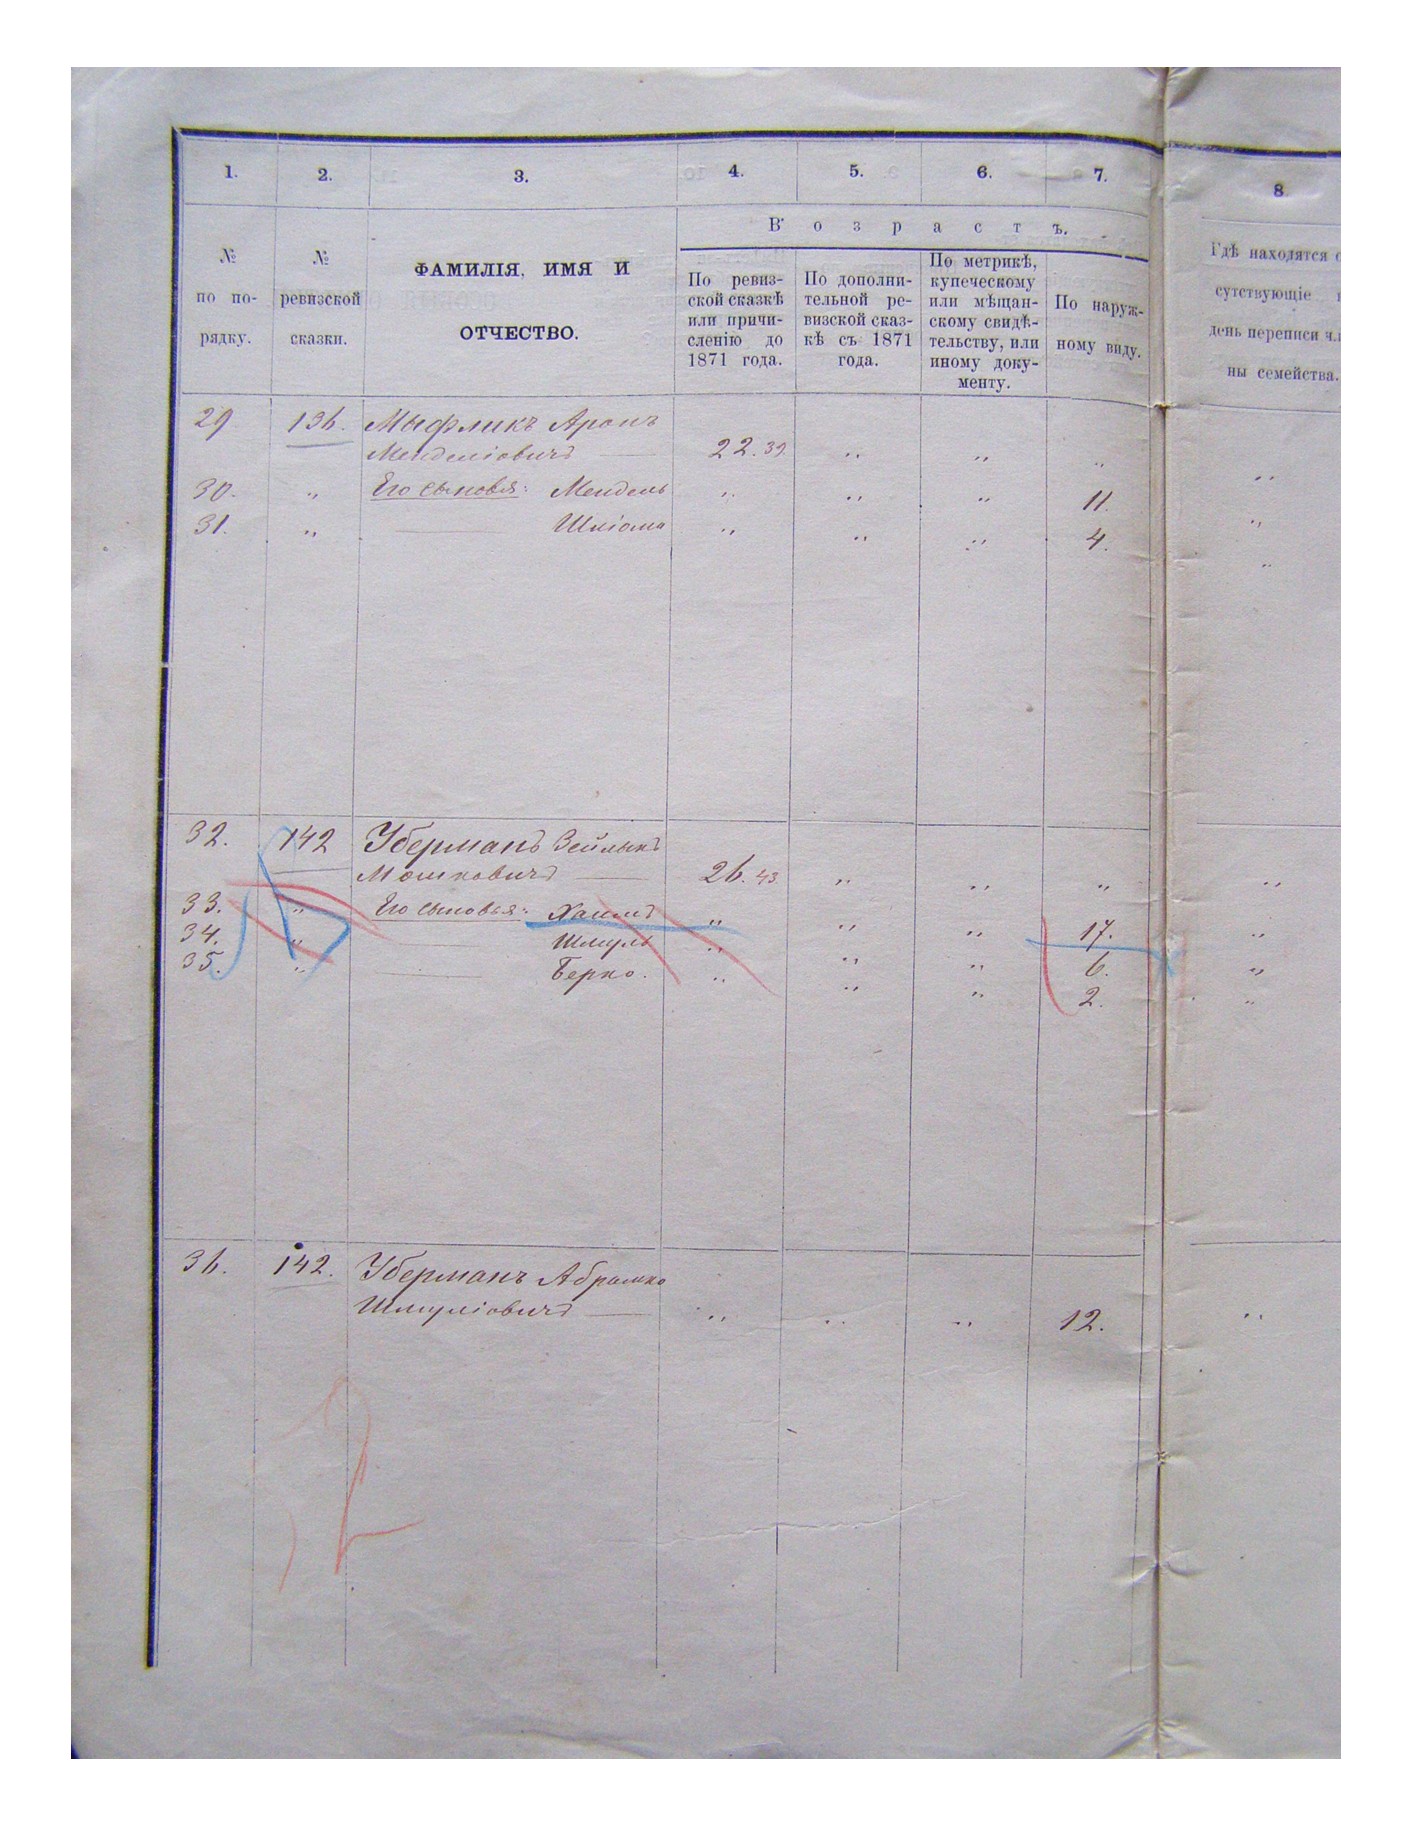 1. 2. 3. 4. 5. 6. 7. 8
№ по по-рядку.
№ ревизской сказки.
ФАМИЛІЯ, ИМЯ И
ОТЧЕСТВО.
Возрастъ.
По ревиз-
ской сказкѣ
или причи-
сленію до
1871 года.
По дополни-
тельной ре-
визской сказ-
кѣ съ 1871
года.
По метрикѣ,
купеческому
или мѣщан-
скому свидѣ-
тельству, или
иному доку-
менту.
По наруж-
ному виду.
Гдѣ находятся
сутствующіе
день переписи
ны семейства.
29 136. Мыфликъ Аронъ
Менделіовичъ 22. 39 „ „ „ „
30. „ Его сыновья: Мендель „ „ „ 11. „
31. „ Шліома „ „ „ 4. „
32. 142 Уберманъ Зейлыкъ
Мошковичъ 26. 43 „ „ „ „
33. „ Его сыновья: Хаимъ „ „ „ 17. „
34. „ Шмуль „ „ „ 6. „
35. „ Берко. „ „ „ 2. „
36. 142. Уберманъ Абрамко
Шмуліовичъ „ „ „ 12. „